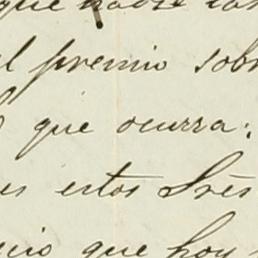 que
l premio sobr
que ocurra:
es estos Sres
cio que hoy